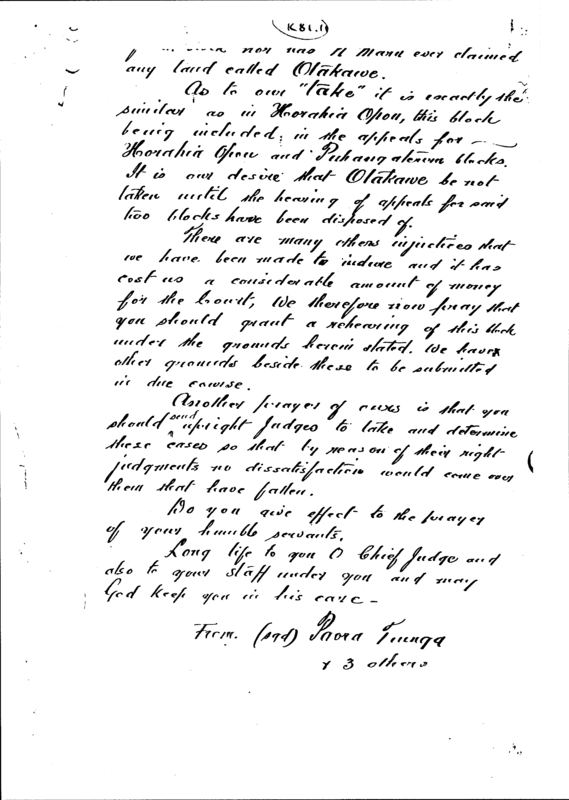 K81.11
nor has H Mara ever claimed
any land called Otakawe.
As to our "take" it is exactly the
similar as in Horahia Opou, this block
being included, in the appeals for
Horahia Opou and Puhangateuru blocks.
It is our desire that Otakawe be not
taken until the hearing of appeals for said
two blocks have been disposed of.
There are many others injustices that
we have been made to indure and it has
cost us a considerable amount of money
for the Court, We therefore now pray that
you should grant a rehearing of this block
under the grounds herein stated. We have
other grounds beside these to be submitted
in due course.
Another prayer of ours is that you
should send upright Judges to take and determine
these cases so that by reason of their right
judgments no dissatisfaction would come over
them that have fallen.
Do you give effect to the prayer
of your humble servants.
Long life to you O Chief Judge and
also to your staff under you and may
God keep you in his care -
From. (sgd) Paora Tiunga
& 3 others